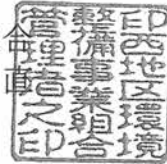 印西地区環境
整備事業組合
管理者之印